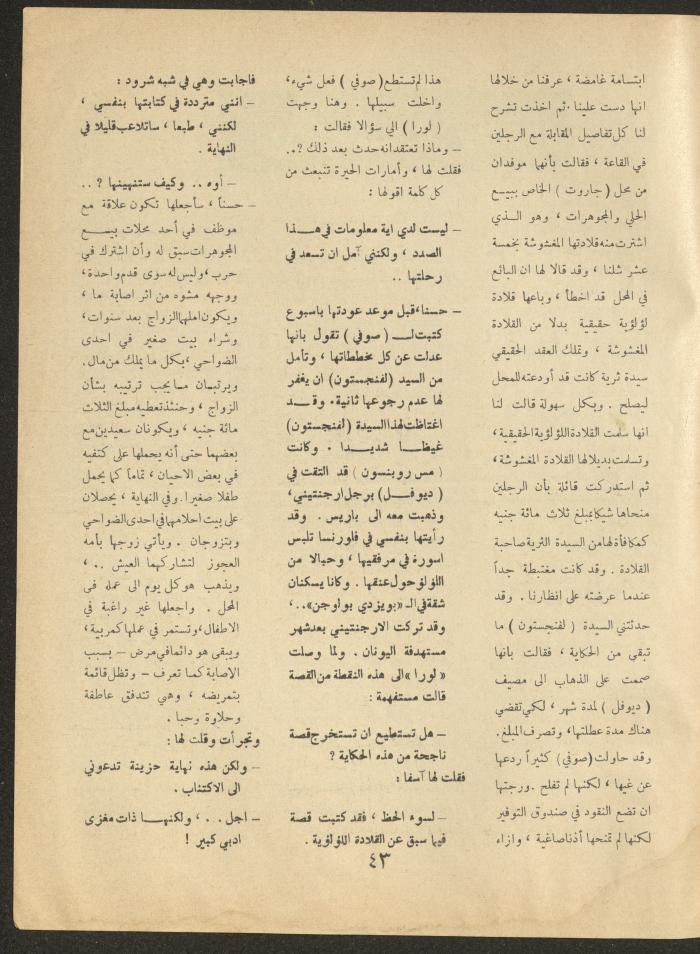 ابتسامة غامضة ، عرفنا من خلالها
انها دست علينا . ثم اخذت تشرح
لنا كل تفاصيل المقابلة مع الرجلين
في القاعة ، فقالت بأنهما موفدان
من محل ( جاروت ) الخاص ببيـع
الحلي والمجوهرات ، وهو الـذي
اشترت منه قلادتها المغشوشة بخمسة
عشر شلنا ، وقد قالا لها ان البائع
في المحل قد اخطأ ، وباعها قلادة
لؤلؤية حقيقية بدلا من القلادة
المغشوشة ، وتملك العقد الحقيقي
سيدة ثرية كانت قد أودعته للمحل
ليصلح . وبكل سهولة قالت لنا
انها سلمت القلادة اللؤلؤية الحقيقية ،
وتسلمت بديلا لها القلادة المغشوشة ،
ثم استدركت قائلة بأن الرجلين
منحاها شيكا بمبلغ ثلاث مائة جنيه
كمكافأة لها من السيدة الثرية صاحبة
القلادة . وقد كانت مغتبطة جداً
عندما عرضته على انظارنا . وقد
حدثتني السيدة ( لفنجستون ) ما
تبقى من الحكاية ، فقالت بانها
صممت على الذهاب الى مصيف
( ديوفل ) لمدة شهر ، لكي تقضي
هناك مدة عطلتها ، وتصرف المبلغ .
وقد حاولت (صوفي) كثيراً ردعها
عن غيها ، لكنها لم تفلح . ورجتها
ان تضع النقود في صندوق التوفير
لكنها لم تمنحها أذنا صاغية ، وازاء
هذا لم تستطع ( صوفي ) فعل شيء ،
واخلت سبيلها . وهنا وجهت
( لورا ) الي سؤالا فقالت :
– وماذا تعتقد انه حدث بعد ذلك ؟..
فقلت لها ، وأمارات الحيرة تنبعث من
كل كلمة اقولها :
– ليست لدي اية معلومات في هـذا
الصدد ، ولكنني آمل ان تسعد في
رحلتها ..
– حسنا، قبل موعد عودتها باسبوع
كتبت لـ ( صوفي ) تقول بانها
عدلت عن كل مخططاتها ، وتأمل
من السيد ( لفنجستون ) ان يغفر
لها عدم رجوعها ثانية . وقـد
اغتاظت لهذا السيدة ( لفنجستون )
غيظـا شديـدا . وكانت
( مس روبنسون ) قد التقت في
( ديوفـل ) برجل ارجنتيني ،
وذهبت معه الى باريس . وقد
رأيتها بنفسي في فلورنسا تلبس
اسورة في مرفقيها ، وحبالا من
اللؤلؤ حول عنقها . وكانا يسكنان
شقة في الـ «بويزدي بولوجن»..،
وقد تركت الارجنتيني بعد شهر
مستهدفة اليونان . ولما وصلت
« لورا » الى هذه النقطة من القصة
قالت مستفهمة :
– هل تستطيع ان تستخرج قصة
ناجحة من هذه الحكاية ؟
فقلت لها آسفا :
– لسوء الحظ ، فقد كتبت قصة
فيما سبق عن القلادة اللؤلؤية .
فاجابت وهي في شبه شرود :
– انني مترددة في كتابتها بنفسي ،
لكنني ، طبعا ، ساتلاعب قليلا في
النهاية .
– أوه .. وكيف ستنهينها ؟ ..
– حسناً ، سأجعلها تكون علاقة مع
موظف في أحد محلات بيـع
المجوهرات سبق له وأن اشترك في
حرب ، وليس له سوى قدم واحدة ،
ووجهه مشوه من اثر اصابة ما ،
ويكون املهما الزواج بعد سنوات،
وشراء بيت صغير في احدى
الضواحي ، بكل ما يملك من مال .
ويرتبان مـا يجب ترتيبه بشأن
الزواج ، وحنئذ تعطيه مبلغ الثلاث
مائة جنيه ، ويكونان سعيدين مع
بعضهما حتى أنه يحملها على كتفيه
في بعض الاحيان ، تماماً كما يحمل
طفلا صغيرا . وفي النهاية ، يحصلان
على بيت احلامهما في احدى الضواحي
ويتزوجان . ويأتي زوجها بأمه
العجوز لتشاركهما العيش .. ،
ويذهب هو كل يوم الى عمله في
المحل . واجعلها غير راغبة في
الاطفال ، وتستمر في عملها كمربية ،
ويبقى هو دائما في مرض – بسبب
الاصابة كما تعرف – وتظل قائمة
بتمريضه ، وهي تتدفق عاطفة
وحلاوة وحبا .
وتجرأت وقلت لها :
– ولكن هذه نهاية حزينة تدعوني
الى الاكتئاب .
– اجل ... ، ولكنهـا ذات مغزى
ادبي كبير !
٤٣